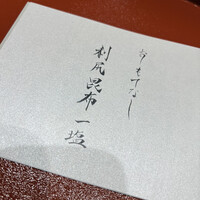 おもてなし
利尻昆布一塩